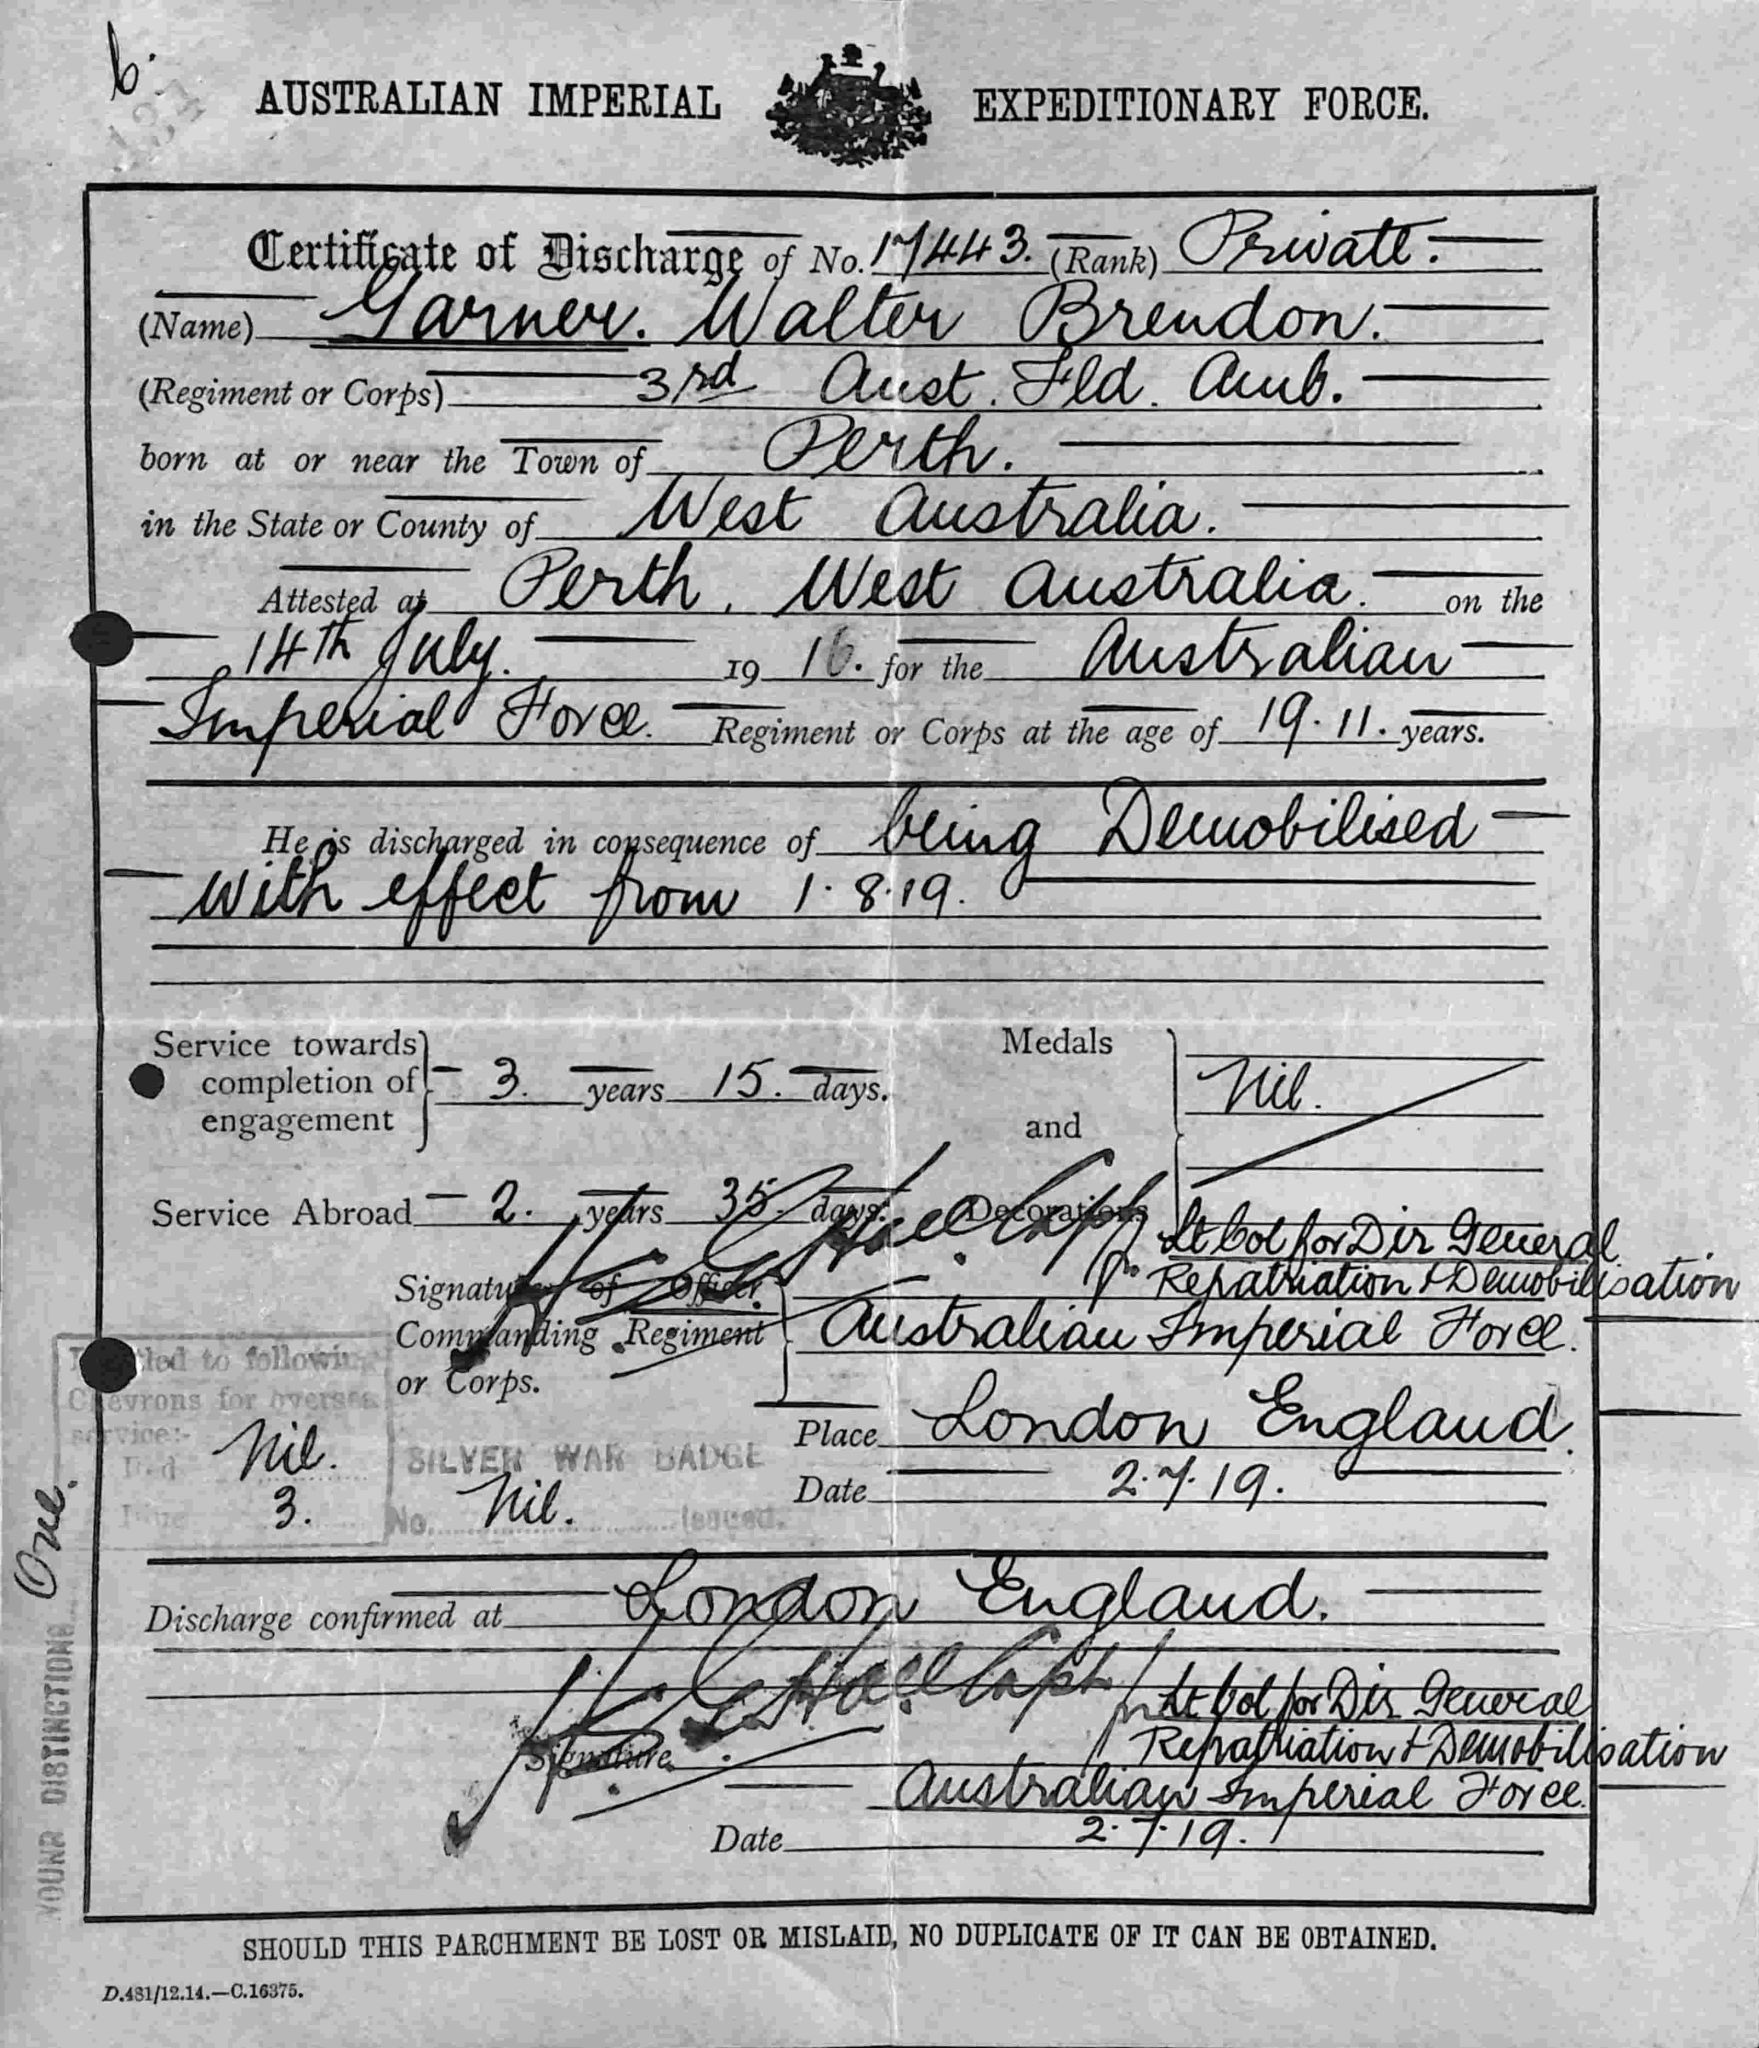 6.
AUSTRALIAN IMPERIAL EXPEDITIONARY FORCE.
Certificate of Discharge of No. 17443. (Rank) Private.
(Name) Garner. Walter Brendon.
(Regiment or Corps) 3rd Aust. Fld. Amb.
born at or near the Town of Perth.
in the State or County of West Australia.
Attested at Perth, West Australia. on the
14th July. 19 16. for the Australian
Imperial Force. Regiment or Corps at the age of 19.11. years.
He is discharged in consequence of being Demobilised
with effect from 1.8.19.
Service towards completion of engagement 3. years 15. days.
Medals and Decorations Nil.
Service Abroad 2. years 35. days.
Hall Capt
for Lt Col for Dir General
Repatriation & Demobilisation
Signature of Officer Commanding Regiment or Corps. Australian Imperial Force.
Place London England.
Date 2.7.19.
Entitled to following
Chevrons for overseas
service:-
Red Nil.
Blue 3.
SILVER WAR BADGE
No. Nil. Issued.
WOUND DISTINCTIONS One.
Discharge confirmed at London England.
Hall Capt
for Lt Col for Dir General
Repatriation & Demobilisation
Signature Australian Imperial Force.
Date 2.7.19.
SHOULD THIS PARCHMENT BE LOST OR MISLAID, NO DUPLICATE OF IT CAN BE OBTAINED.
D.481/12.14.—C.16375.